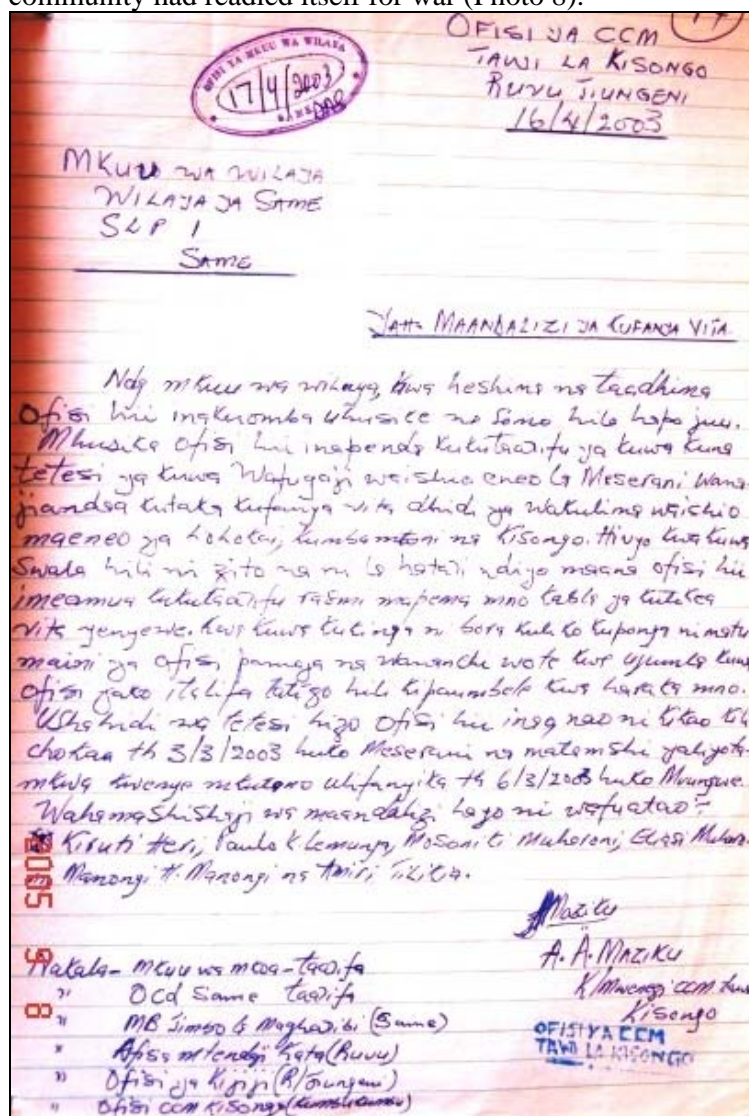 community had readied itself for war (Photo 8).
OFISI YA CCM
TAWI LA KISONGO
RUVU JIUNGENI
16/4/2003
OFISI YA MKUU WA WILAYA
17/4/2003
SAME
MKUU WA WILAYA
WILAYA YA SAME
SLP 1
SAME
YAH= MAANDALIZI YA KUFANYA VITA
Ndg mkuu wa wilaya, Kwa heshima na taadhima
Ofisi hii inakuomba uhusike na somo hilo hapo juu.
Mhusika Ofisi hii inapenda kukutaarifu ya kuwa kuna
tetesi ya kuwa Wafugaji waishio eneo la Meserani wana
jiandaa kutaka kufanya vita dhidi ya wakulima waishio
maeneo ya na Kisongo. Hivyo kwa kuwa
Swala hili ni zito na ni la hatari ndiyo maana ofisi hii
imeamua kukutaarifu rasmi mapema mno kabla ya kutokea
vita yenyewe. Kwa kuwa kukinga ni bora kuliko kuponya ni matu
maini ya ofisi pamoja na wananchi wote kwa ujumla kuwa
ofisi yako italipa tatizo hili kipaumbele kwa haraka mno.
Ushahidi wa tetesi hizo Ofisi hii inao nao ni kikao kili
chokaa th 3/3/2003 huko Meserani na matamshi yaliyota
mkwa kwenye mkutano ulifanyika th 6/3/2003 huko
Wahamashishaji wa maandalizi hayo ni wafuatao:-
Kiruti Heri, Paulo K Lemunga, Muhoroni,
Manongi H. Manongi na Amiri
2005 9 8
Maziku
A. A. MAZIKU
K/Mwenezi CCM
Kisongo
OFISI YA CCM
TAWI LA KISONGO
Nakala- Mkuu wa mkoa - taarifa
" Ocd Same taarifa
" MB Jimbo la Magharibi (Same)
" Afisa mtendaji Kata (Ruvu)
" Ofisi ya Kijiji (R/Jiungeni)
" Ofisi CCM Kisongo (kumbukumbu)